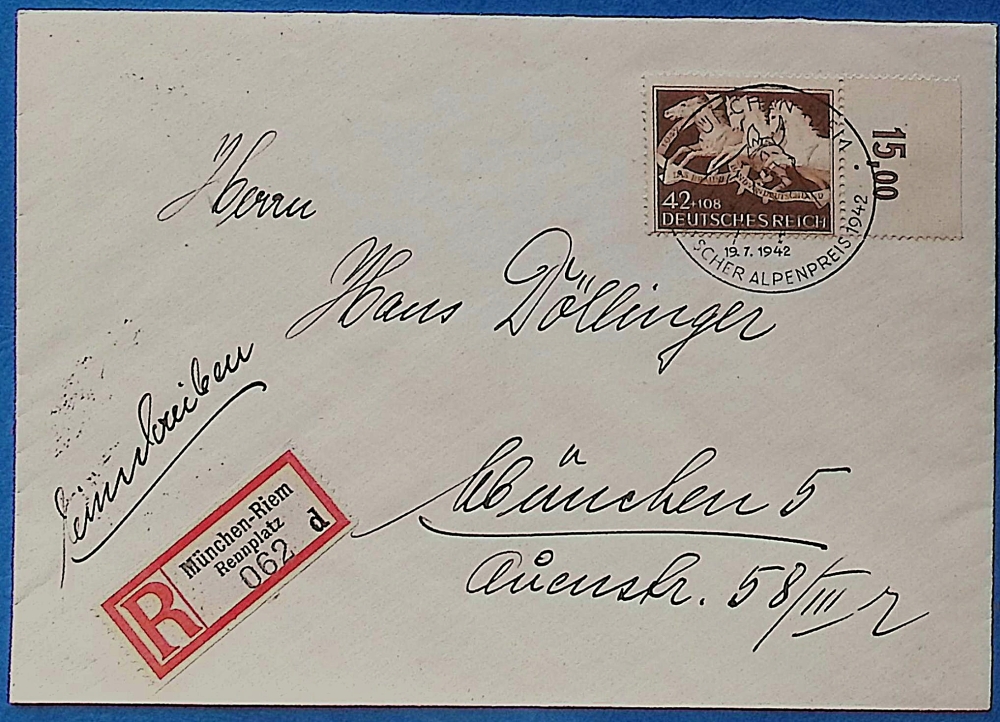 Herrn
Hans Döllinger
Einschreiben
München 5
Auenstr. 58/III r
R
München-Riem
Rennplatz
062 d
42+108
DEUTSCHES REICH
MÜNCHEN
19.7.1942
SCHER ALPENPREIS 1942
15,00